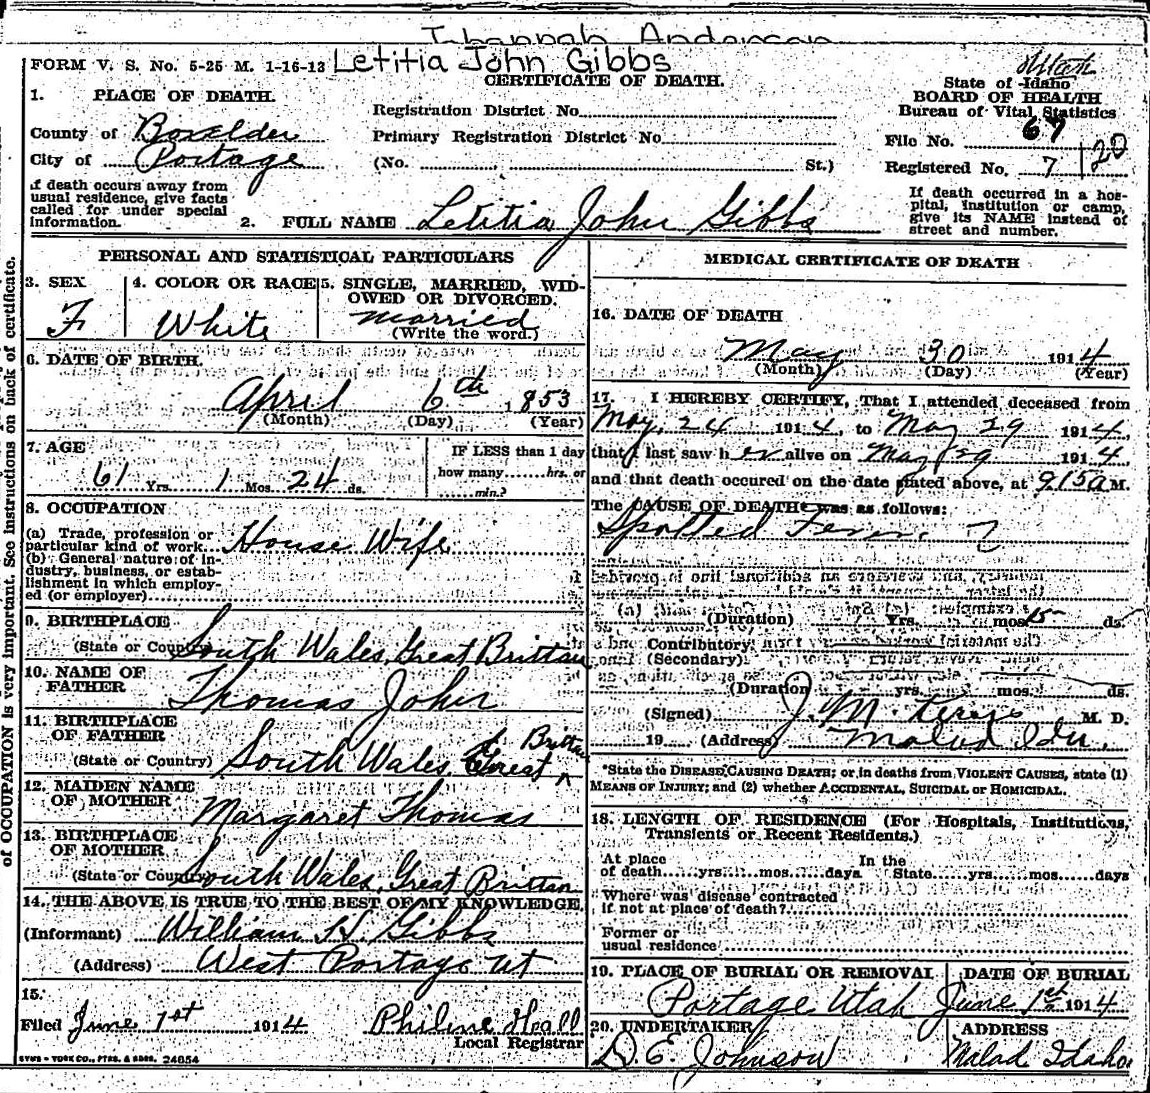 Letitia John Gibbs
FORM V. S. No. 5-25 M. 1-16-13
CERTIFICATE OF DEATH.
Utah
State of Idaho
BOARD OF HEALTH
Bureau of Vital Statistics
File No. 67
Registered No. 7 120
1. PLACE OF DEATH.
County of Boxelder
City of Portage
Registration District No.
Primary Registration District No.
(No. St.)
if death occurs away from
usual residence, give facts
called for under special
information.
If death occurred in a hos-
pital, institution or camp,
give its NAME instead of
street and number.
2. FULL NAME Letitia John Gibbs
of OCCUPATION is very important. See instructions on back of certificate.
PERSONAL AND STATISTICAL PARTICULARS
3. SEX
F
4. COLOR OR RACE
White
5. SINGLE, MARRIED, WID-
OWED OR DIVORCED.
married
(Write the word.)
6. DATE OF BIRTH.
April 6th, 1853
(Month) (Day) (Year)
7. AGE
61 Yrs. 1 Mos. 24 ds.
IF LESS than 1 day
how many hrs. or
min.?
8. OCCUPATION
(a) Trade, profession or
particular kind of work House Wife
(b) General nature of in-
dustry, business, or estab-
lishment in which employ-
ed (or employer)
9. BIRTHPLACE
(State or Country) South Wales, Great Brittan
10. NAME OF
FATHER Thomas John
11. BIRTHPLACE
OF FATHER
(State or Country) South Wales, Great Brittan
12. MAIDEN NAME
OF MOTHER Margaret Thomas
13. BIRTHPLACE
OF MOTHER
(State or Country) South Wales, Great Brittan
14. THE ABOVE IS TRUE TO THE BEST OF MY KNOWLEDGE.
(Informant) William H. Gibbs
(Address) West Portage Ut
15.
Filed June 1st 1914 Philene Hall
Local Registrar
SYMS-YORK CO., PTRS. & BDRS. 24654
MEDICAL CERTIFICATE OF DEATH
16. DATE OF DEATH
May 30 1914
(Month) (Day) (Year)
17. I HEREBY CERTIFY, That I attended deceased from
May, 24 1914, to May 29 1914,
that I last saw her alive on May 29 1914
and that death occured on the date stated above, at 9 15 a M.
The CAUSE OF DEATH* was as follows:
Spotted Fever. ?
(Duration) Yrs. mos 15 ds.
Contributory
(Secondary)
(Duration) yrs. mos. ds.
(Signed) J. M. M. D.
19 (Address) Malad Ida.
*State the DISEASE CAUSING DEATH; or, in deaths from VIOLENT CAUSES, state (1)
MEANS OF INJURY; and (2) whether ACCIDENTAL, SUICIDAL or HOMICIDAL.
18. LENGTH OF RESIDENCE (For Hospitals, Institutions,
Transients or Recent Residents.)
At place In the
of death yrs. mos. days State yrs. mos. days
Where was disease contracted
if not at place of death?
Former or
usual residence
19. PLACE OF BURIAL OR REMOVAL
Portage Utah
DATE OF BURIAL
June 1st 1914
20. UNDERTAKER
D. E. Johnson
ADDRESS
Malad Idaho